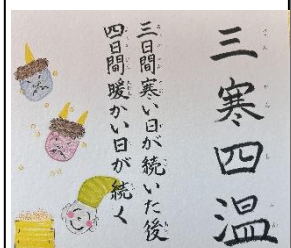 三寒四温
三日間寒い日が続いた後
四日間暖かい日が続く